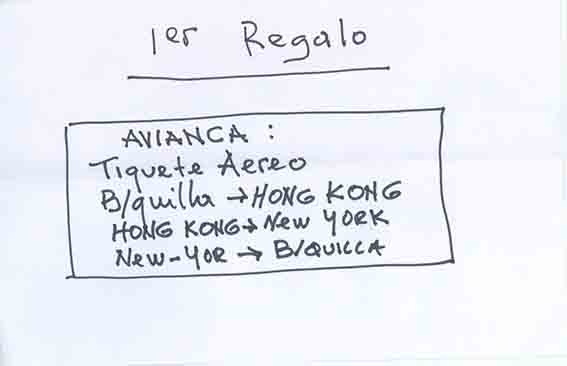 1er Regalo
AVIANCA :
Tiquete Aereo
B/quilla → HONG KONG
HONG KONG → NEW YORK
NEW-YOR → B/QUILLA